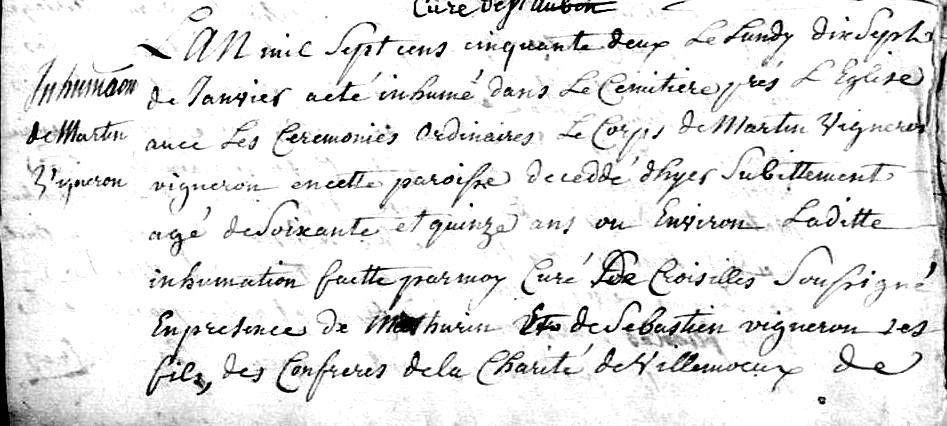 Curé de St aubin
LAN mil Sept cens cinquante deux Le Lundy dix Sept
de Janvier a eté inhumé dans Le Cemitiere prés L'Eglise
avec Les Ceremonies Ordinaires Le Corps de Martin Vigneron
vigneron en cette paroisse deceddé d'hyer Subittement
agé de Soixante et quinze ans ou Environ Laditte
inhumation faitte par moy Curé De Croisilles Soussigné
En presence de Mathurin Et de Sebastien vigneron ses
fils, des Confreres de la Charité de Villemeux de
Inhumaon
de Martin
Vigneron